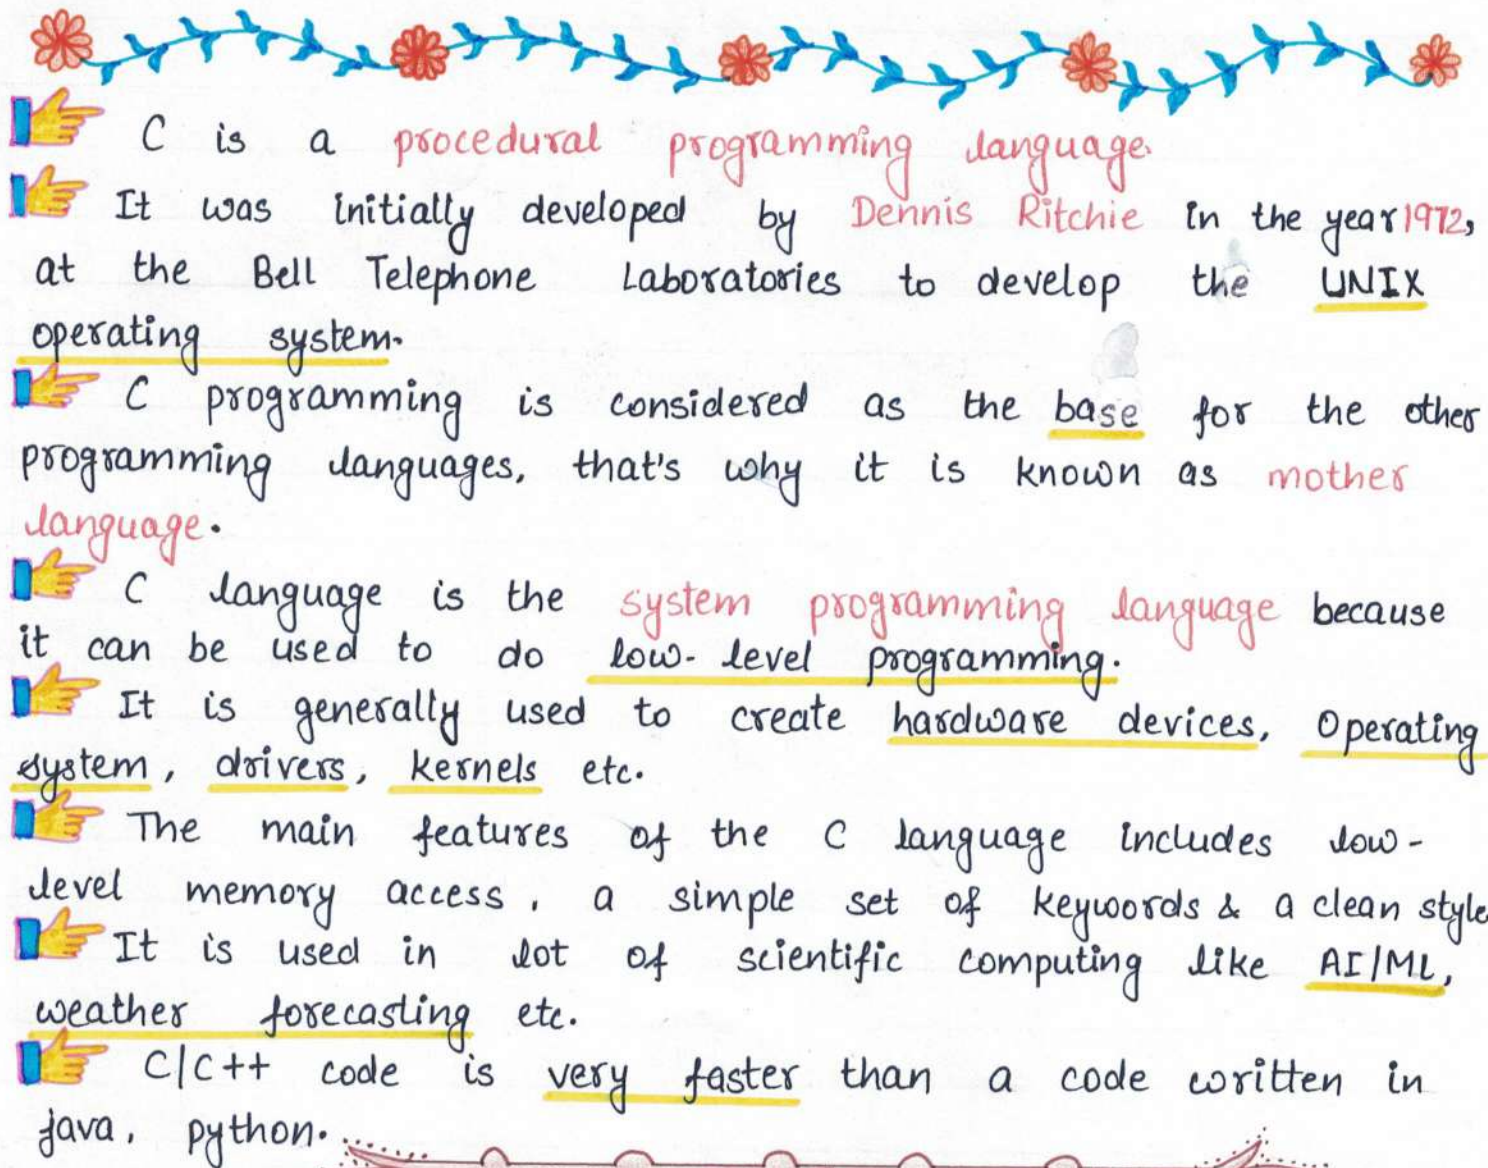 C is a procedural programming language.
It was initially developed by Dennis Ritchie in the year 1972,
at the Bell Telephone Laboratories to develop the UNIX
operating system.
C programming is considered as the base for the other
programming languages, that's why it is known as mother
language.
C language is the system programming language because
it can be used to do low-level programming.
It is generally used to create hardware devices, Operating
system, drivers, kernels etc.
The main features of the C language includes low-
level memory access, a simple set of keywords & a clean style
It is used in lot of scientific computing like AI/ML,
weather forecasting etc.
C/C++ code is very faster than a code written in
java, python.